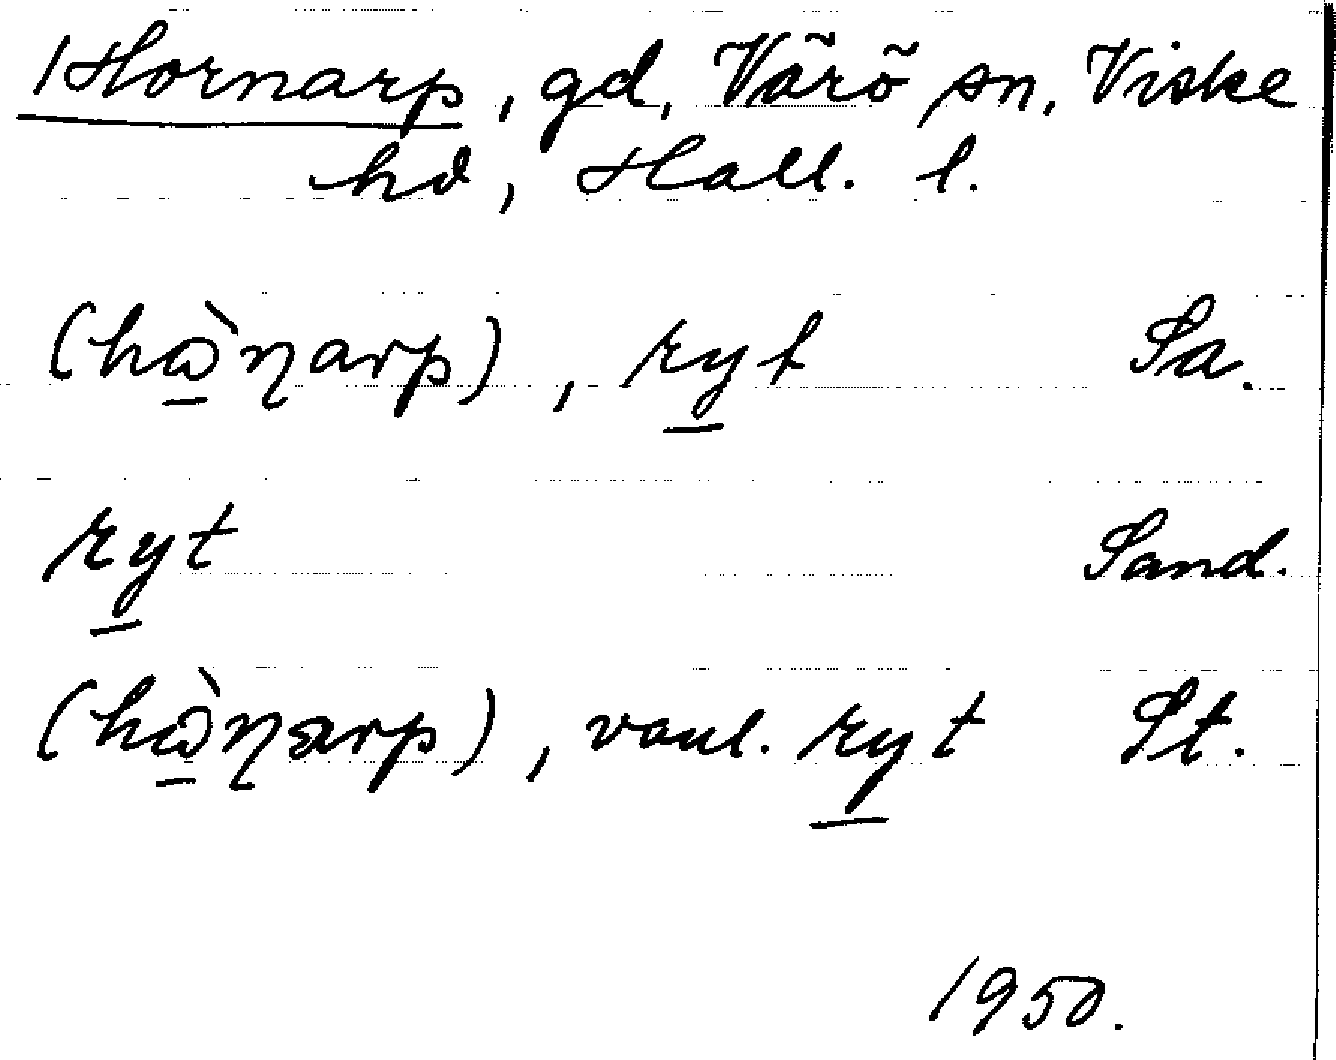 Hornarp, gd, Värö sn, Viske
hd, Hall. l.
(hɷ̀ɳarp), ryt Sa.
ryt Sand.
(hɷ̀ɳarp), vanl. ryt St.
1950.